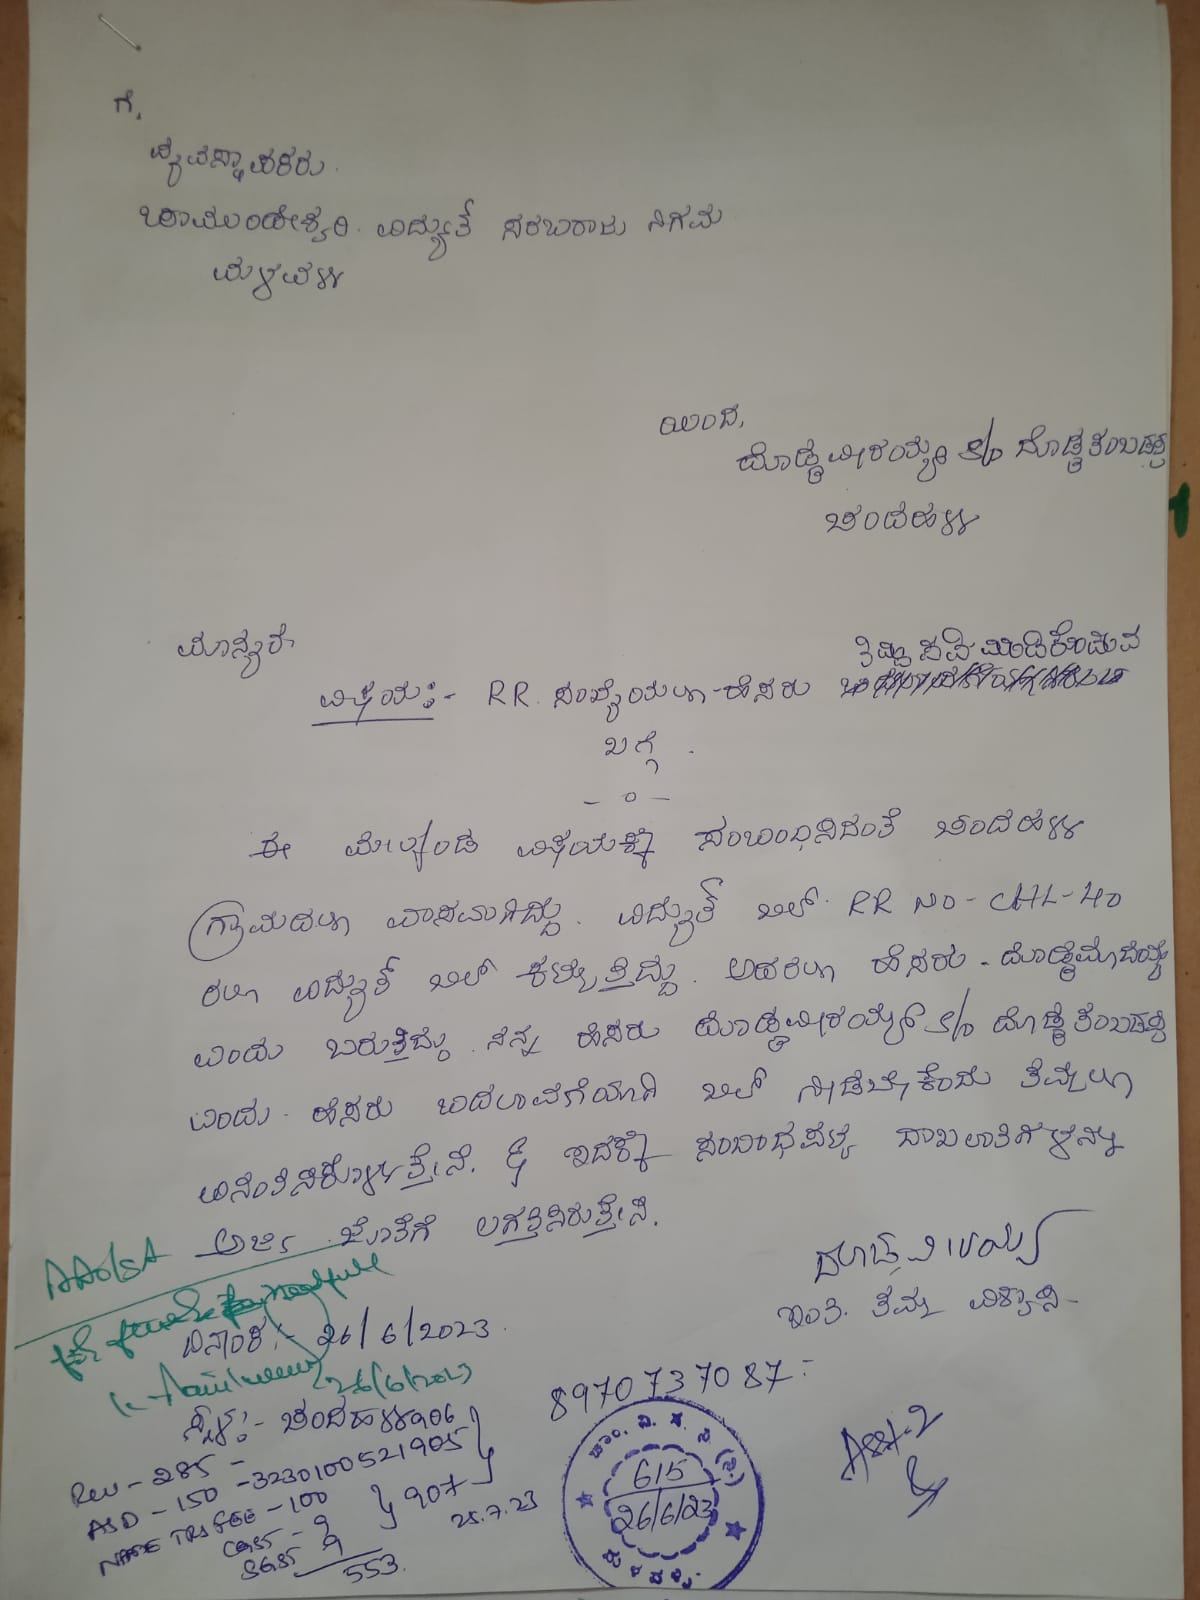 ಗೆ,
ವ್ಯವಸ್ಥಾಪಕರು.
ಚಾಮುಂಡೇಶ್ವರಿ ವಿದ್ಯುತ್ ಸರಬರಾಜು ನಿಗಮ
ಮಳವಳ್ಳಿ
ಯಿಂದ,
ದೊಡ್ಡವೀರಯ್ಯ S/o ದೊಡ್ಡತಂಬಡಪ್ಪ
ಚಂದಹಳ್ಳಿ
ಮಾನ್ಯರೇ
ವಿಷಯ:- RR. ಸಂಖ್ಯೆಯಲ್ಲಿ ಹೆಸರು
ಬಗ್ಗೆ.
- 0 -
ಈ ಮೇಲ್ಕಂಡ ವಿಷಯಕ್ಕೆ ಸಂಬಂಧಿಸಿದಂತೆ ಚಂದಹಳ್ಳಿ
ಗ್ರಾಮದಲ್ಲಿ ವಾಸವಾಗಿದ್ದು. ವಿದ್ಯುತ್ ಬಿಲ್ RR NO - CHL-40
ರಲ್ಲಿ ವಿದ್ಯುತ್ ಬಿಲ್ ಕಟ್ಟುತ್ತಿದ್ದು. ಅದರಲ್ಲಿ ಹೆಸರು - ದೊಡ್ಡಮಾದಯ್ಯ
ಎಂದು ಬರುತ್ತಿದ್ದು. ನನ್ನ ಹೆಸರು ದೊಡ್ಡವೀರಯ್ಯ S/o ದೊಡ್ಡತಂಬಡಪ್ಪ
ಎಂದು ಹೆಸರು ಬದಲಾವಣೆಯಾಗಿ ಬಿಲ್ ನೀಡಬೇಕೆಂದು ತಮ್ಮಲ್ಲಿ
ವಿನಂತಿಸಿಕೊಳ್ಳುತ್ತೇನೆ. & ಇದಕ್ಕೆ ಸಂಬಂಧಪಟ್ಟ ದಾಖಲಾತಿಗಳನ್ನು
ಅರ್ಜಿ ಜೊತೆಗೆ ಲಗತ್ತಿಸಿರುತ್ತೇನೆ.
ದೊಡ್ಡವೀರಯ್ಯ
ಇಂತಿ ತಮ್ಮ ವಿಶ್ವಾಸಿ
ದಿನಾಂಕ:- 26/6/2023
26/6/2023
ಸ್ಥಳ:- ಚಂದಹಳ್ಳಿ
8970737087
Rev - 285 -
ASD - 150 - 3230100521905
906
NAME TRS FEE - 100
907
25.7.23
CGST - 9
SGST 9
553.
615
26/6/23
ಮಳವಳ್ಳಿ
Asst-2